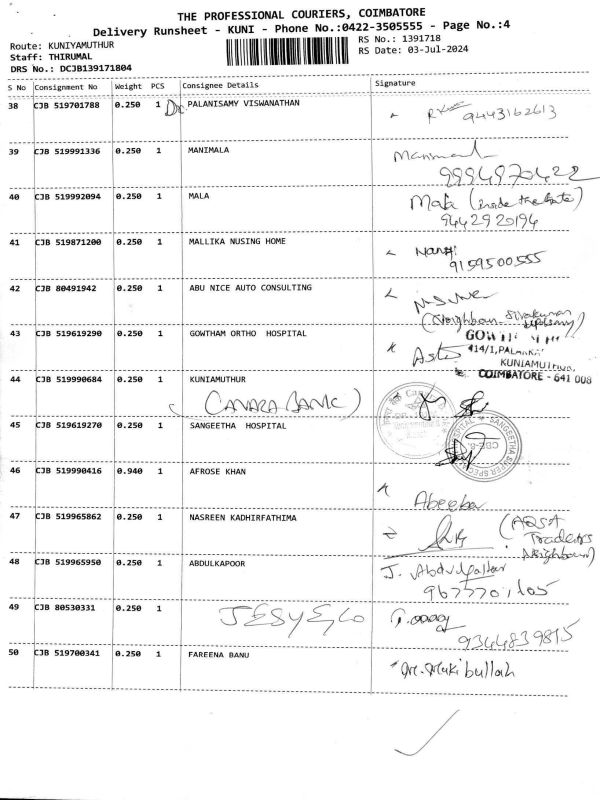 THE PROFESSIONAL COURIERS, COIMBATORE
Delivery Runsheet - KUNI - Phone No.:0422-3505555 - Page No.:4
Route: KUNIYAMUTHUR
RS No.: 1391718
Staff: THIRUMAL
RS Date: 03-Jul-2024
DRS No.: DCJB139171804
S No Consignment No Weight PCS Consignee Details Signature
38 CJB 519701788 0.250 1 Dr. PALANISAMY VISWANATHAN
9443162613
39 CJB 519991336 0.250 1 MANIMALA Manimala
9994970422
40 CJB 519992094 0.250 1 MALA Mala (inside the Gate)
9442920194
41 CJB 519871200 0.250 1 MALLIKA NUSING HOME
9159500555
42 CJB 80491942 0.250 1 ABU NICE AUTO CONSULTING
(Neighbour
43 CJB 519619290 0.250 1 GOWTHAM ORTHO HOSPITAL
414/1,
KUNIAMUTHUR,
COIMBATORE - 641 008
44 CJB 519990684 0.250 1 KUNIAMUTHUR
(CANARA BANK)
45 CJB 519619270 0.250 1 SANGEETHA HOSPITAL
SANGEETHA SUPER
46 CJB 519990416 0.940 1 AFROSE KHAN
Abeeba
47 CJB 519965862 0.250 1 NASREEN KADHIRFATHIMA
(AQSA
Traders
Neighbour)
48 CJB 519965950 0.250 1 ABDULKAPOOR
J. Abdul
49 CJB 80530331 0.250 1
9344839815
50 CJB 519700341 0.250 1 FAREENA BANU